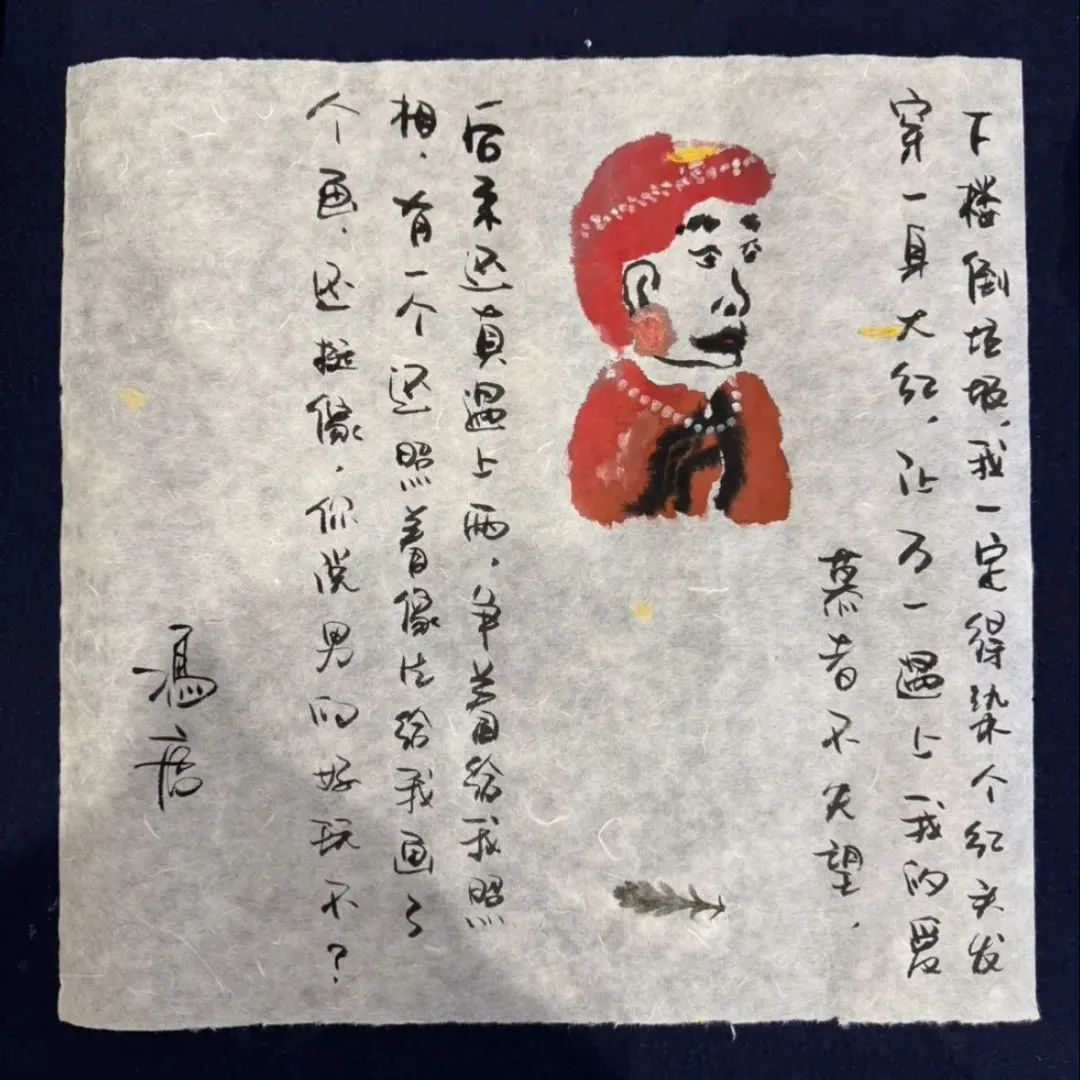 下楼倒垃圾，我一定得染个红头发
穿一身大红，让万一遇上我的爱
慕者不失望，
后来还真遇上两，争着给我照
相，有一个还照着像片给我画了
个画，还挺像，你说男的好玩不？
冯唐